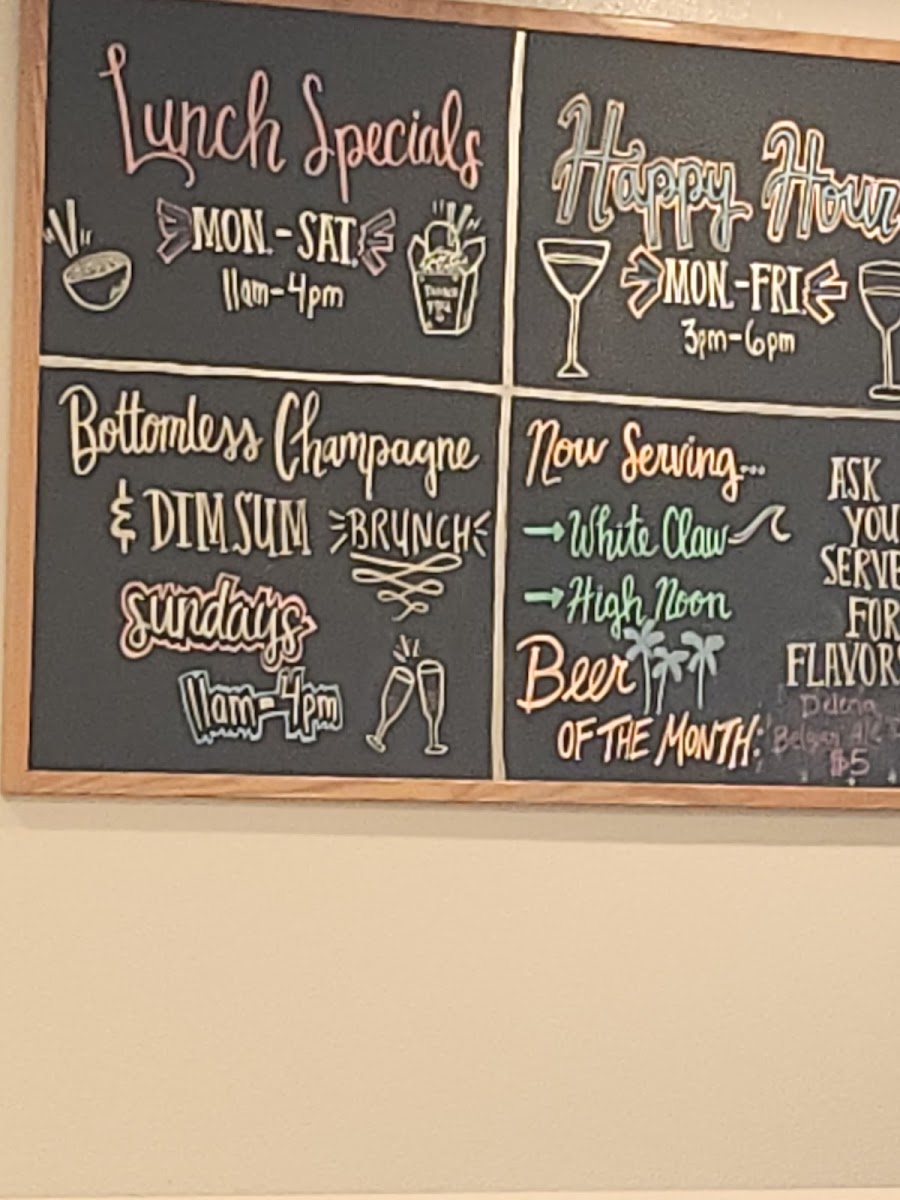 Lunch Specials
MON.-SAT.
11am-4pm
THANK
YOU
Happy Hour
MON.-FRI.
3pm-6pm
Bottomless Champagne
& DIM SUM BRUNCH
Sundays
11am-4pm
Now Serving...
→White Claw
→High Noon
ASK
YOU
SERVE
FOR
FLAVORS
Beer
OF THE MONTH:
Belgan Ale
$5